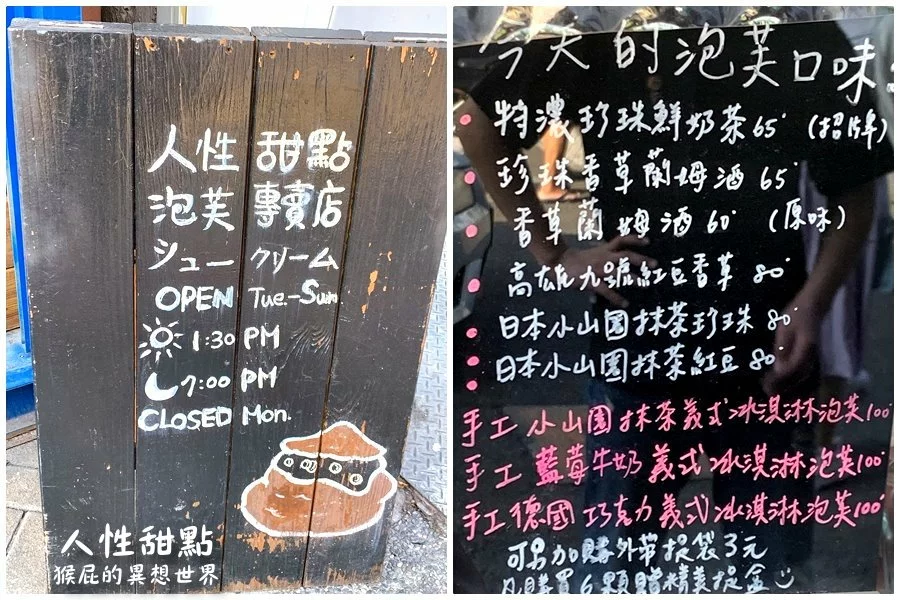 人性 甜點
泡芙 專賣店
シュー クリーム
OPEN Tue.-Sun
1:30 PM
7:00 PM
CLOSED Mon.
人性甜點
猴屁的異想世界
今天的泡芙口味
特濃珍珠鮮奶茶65 (招牌)
珍珠香草蘭姆酒 65
香草蘭姆酒 60 (原味)
高雄九號紅豆香草 80
日本小山園抹茶珍珠 80
日本小山園抹茶紅豆 80
手工 小山園抹茶義式冰淇淋泡芙100
手工 藍莓牛奶義式冰淇淋泡芙100
手工德國巧克力義式冰淇淋泡芙100
可另加購外帶提袋3元
凡購買6顆贈精美提盒